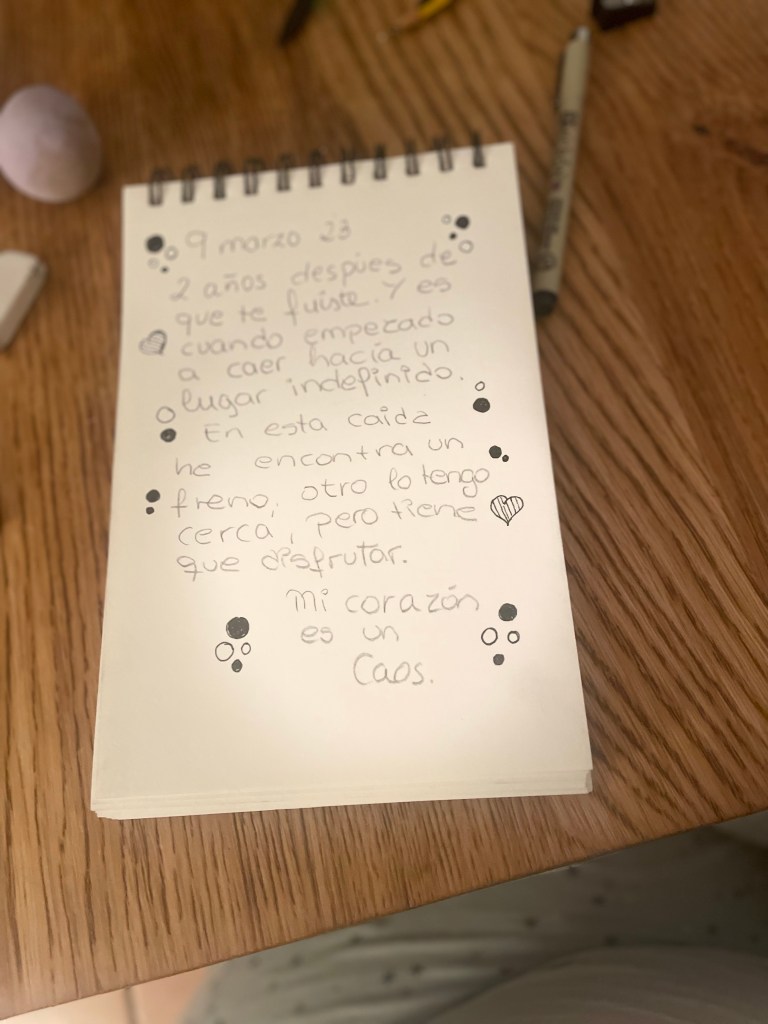 9 marzo 23
2 años despues de
que te fuiste. Y es
cuando empezado
a caer hacía un
lugar indefinido.
En esta caida
he encontra un
freno, otro lo tengo
cerca, pero tiene
que disfrutar.
Mi corazón
es un
Caos.